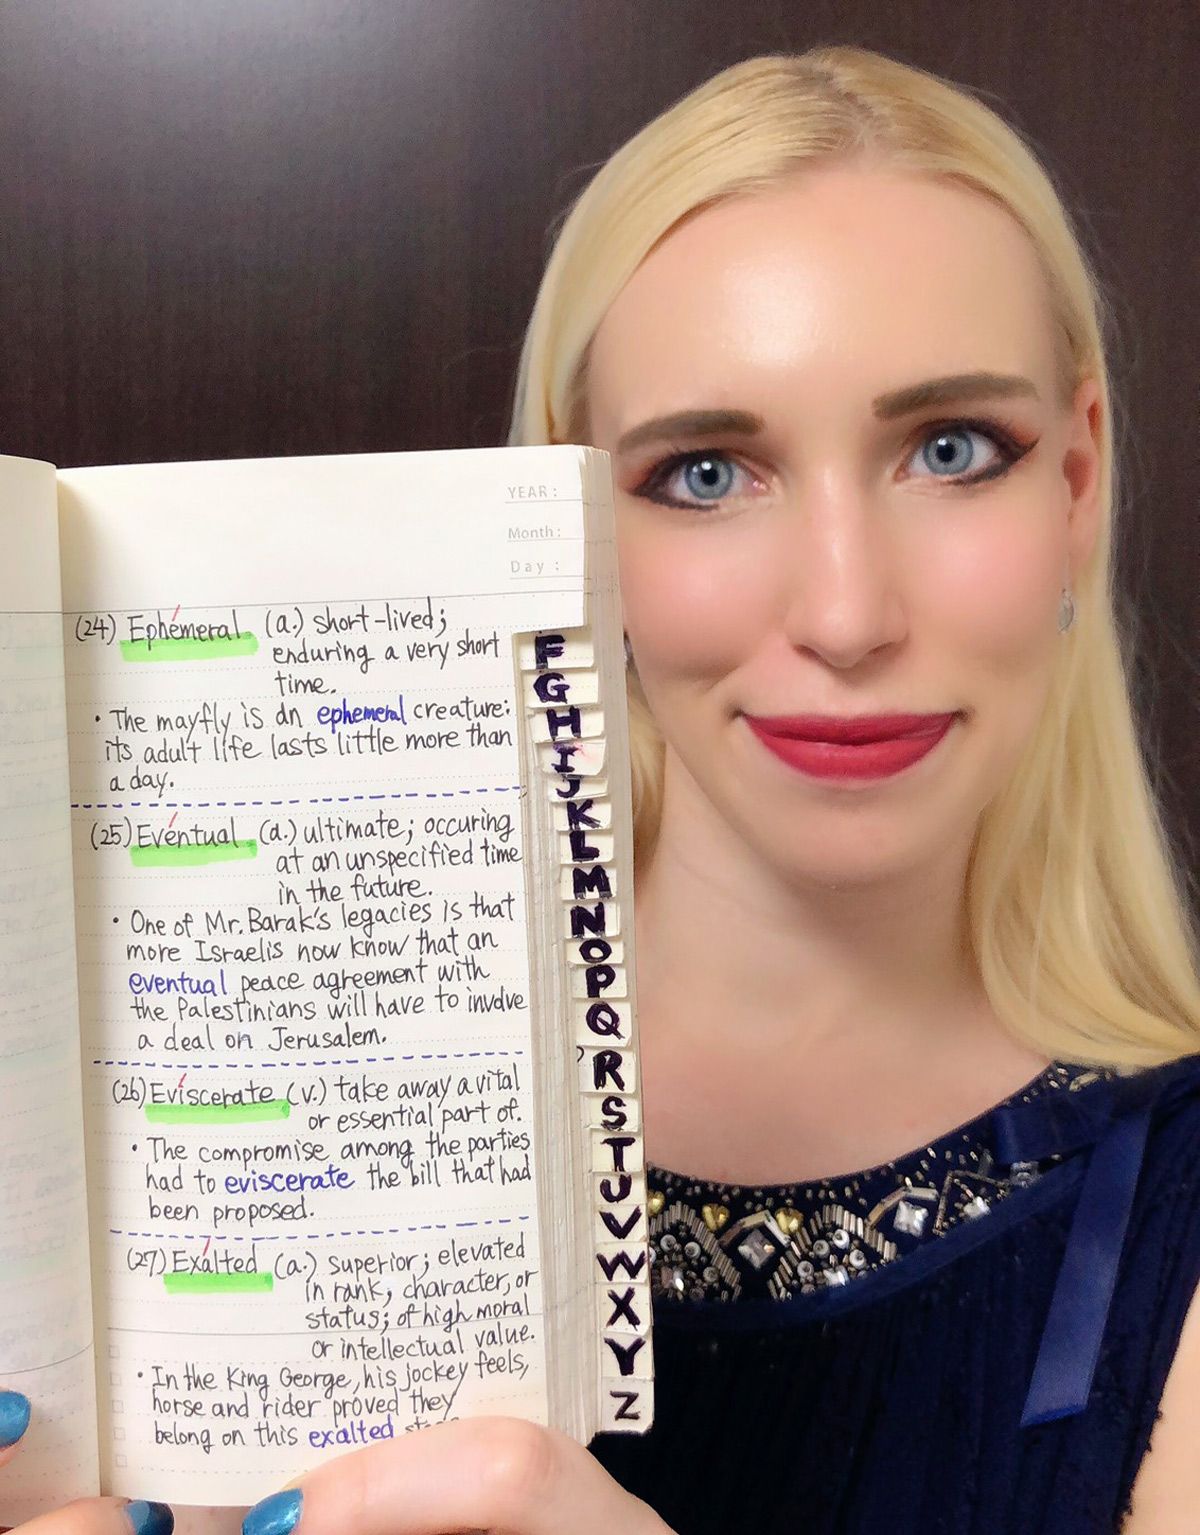 YEAR :
Month :
Day :
(24) Ephemeral (a.) short-lived;
enduring a very short
time.
• The mayfly is an ephemeral creature:
its adult life lasts little more than
a day.
(25) Eventual (a.) ultimate; occuring
at an unspecified time
in the future.
• One of Mr. Barak's legacies is that
more Israelis now know that an
eventual peace agreement with
the Palestinians will have to involve
a deal on Jerusalem.
(26) Eviscerate (v.) take away a vital
or essential part of.
• The compromise among the parties
had to eviscerate the bill that had
been proposed.
(27) Exalted (a.) superior; elevated
in rank, character, or
status; of high moral
or intellectual value.
• In the King George, his jockey feels,
horse and rider proved they
belong on this exalted
F
G
H
I
J
K
L
M
N
O
P
Q
R
S
T
U
V
W
X
Y
Z